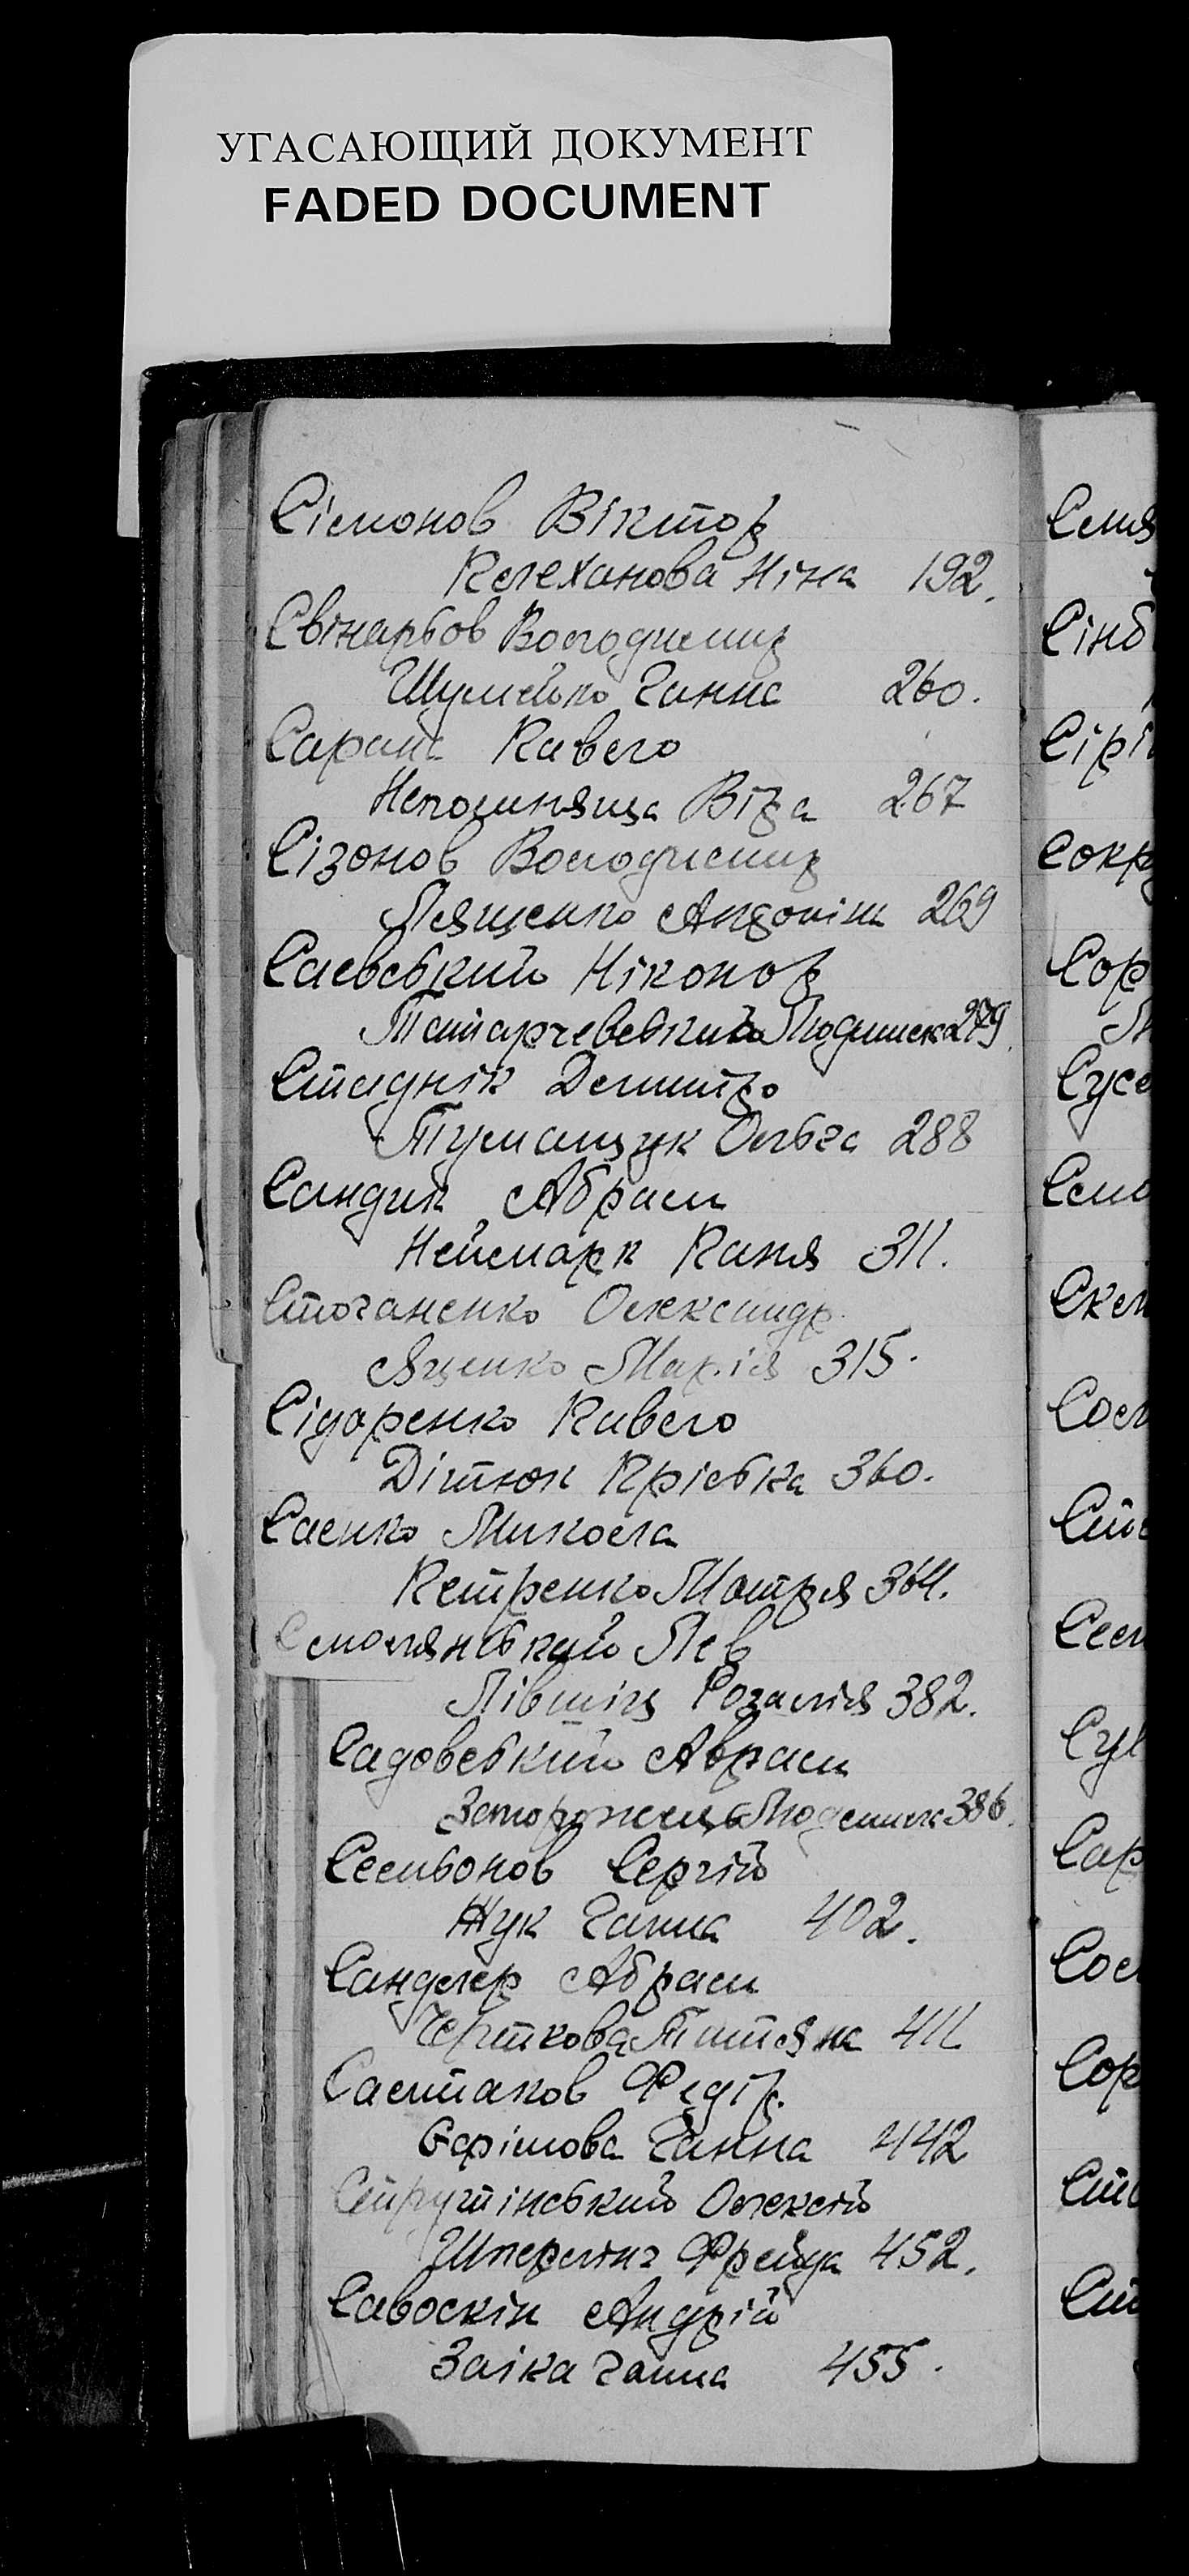 УГАСАЮЩИЙ ДОКУМЕНТ
FADED DOCUMENT
Сімонов Віктор
Пелеханова Ніна 192.
Свінарьов Володимир
Шумейко Ганна 260.
Павело
Непомняща Віра 267
Сізонов Володимир
Лященко Антоніна 269
Саєвський Ніконор
Татарчевська Людмила 279.
Стаднік Дмитро
Тумащук Ольга 288
Сандик Абрам
Неймарк Раня 311.
Стоганенко Олександр
Яценко Марія 315.
Сідоренко Павело
Дітюк Кріська 360.
Саєнко Микола
Петренко Мотря 364.
Смолянський Лев
Лівшіц Розалія 382.
Садовський Аврам
Запорожець Людмила 386.
Семьонов Сергій
Жук Ганна 402.
Сандлер Абрам
Черткова Татяна 411
Салтаков Федір.
Єфімова Ганна 442
Струтінський Олексій
Шперлінг Фрейда 452.
Савоскін Андрій
Заіка Ганна 455.